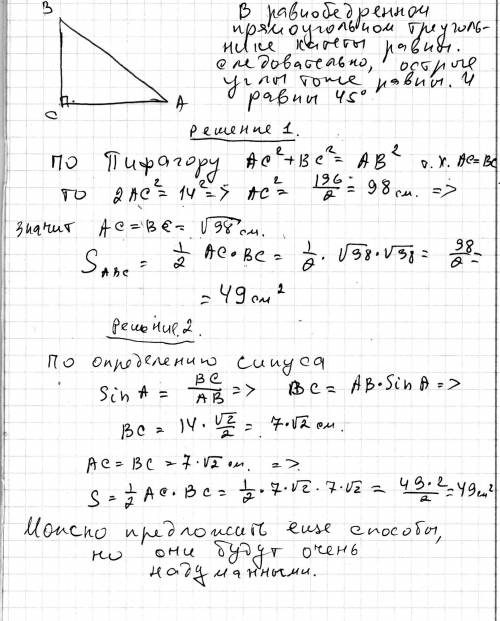 B
C
A
В равнобедренном
прямоугольном треуголь-
нике катеты равны.
следовательно, острые
углы тоже равны. И
равны 45°
Решение 1.
По Пифагору AC²+BC²= AB² т.к. AC=BC
то 2AC²= 14² => AC² = 196/2 = 98 см. =>
значит AC=BC= √98 см.
S_ABC = 1/2 AC·BC = 1/2 · √98·√98 = 98/2 =
= 49 см²
Решение.2.
по определению синуса
Sin A = BC/AB => BC = AB·Sin A =>
BC = 14·√2/2 = 7·√2 см.
AC=BC = 7·√2 см. =>.
S = 1/2 AC·BC = 1/2·7·√2·7·√2 = 49·2/2 = 49см²
Можно предложить еще способы,
но они будут очень
надуманными.